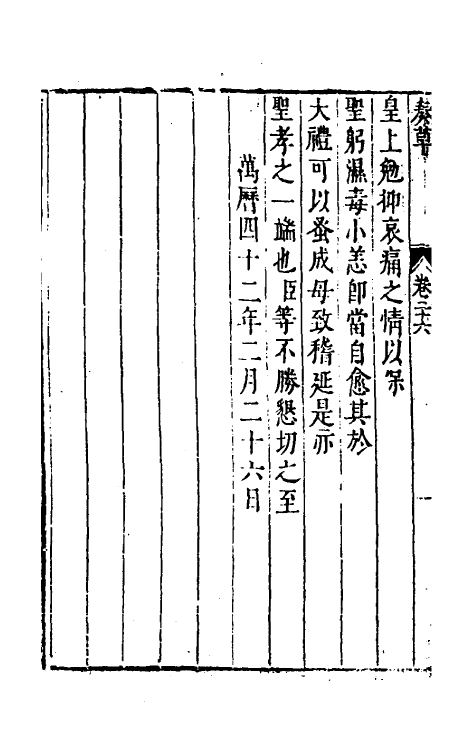 奏草 卷二十六
皇上勉抑哀痛之情以保
聖躬濕毒小恙卽當自愈其於
大禮可以蚤成毋致稽延是亦
聖孝之一端也臣等不勝懇切之至
萬曆四十二年二月二十六日